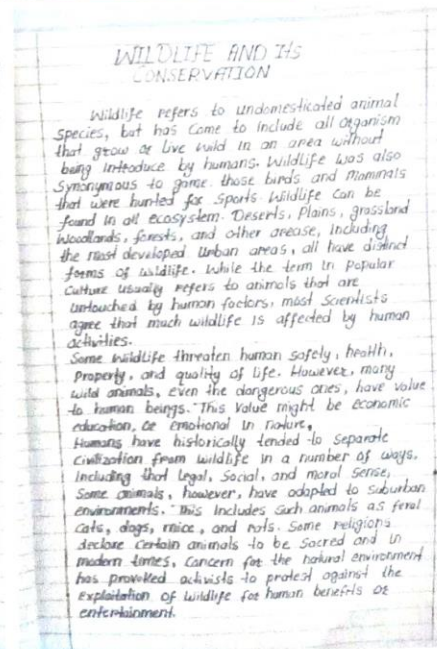 WILDLIFE AND ITS
CONSERVATION
Wildlife refers to undomesticated animal
species, but has come to include all organism
that grow or live wild in an area without
being introduce by humans. Wildlife was also
synonymous to game. those birds and mammals
that were hunted for sports. Wildlife can be
found in all ecosystem. Deserts, plains, grassland
woodlands, forests, and other arease, including
the most developed urban areas, all have distinct
forms of wildlife. While the term in popular
culture usually refers to animals that are
untouched by human factors, most scientists
agree that much wildlife is affected by human
activities.
Some wildlife threaten human safety, health,
property, and quality of life. However, many
wild animals, even the dangerous ones, have value
to human beings. This value might be economic
education, or emotional in nature,
Humans have historically tended to separate
civilization from wildlife in a number of ways.
including that legal, social, and moral sense,
Some animals, however, have adapted to suburban
environments. This includes such animals as feral
cats, dogs, mice, and rats. Some religions
declare certain animals to be sacred and in
modern times, concern for the natural environment
has provoked activists to protest against the
exploitation of wildlife for human benefits or
entertainment.